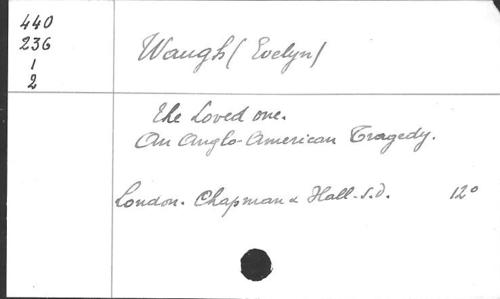 440
236
1
2
Waugh (Evelyn)
The Loved one.
An Anglo-American Tragedy.
London. Chapman & Hall - s.d. 12°